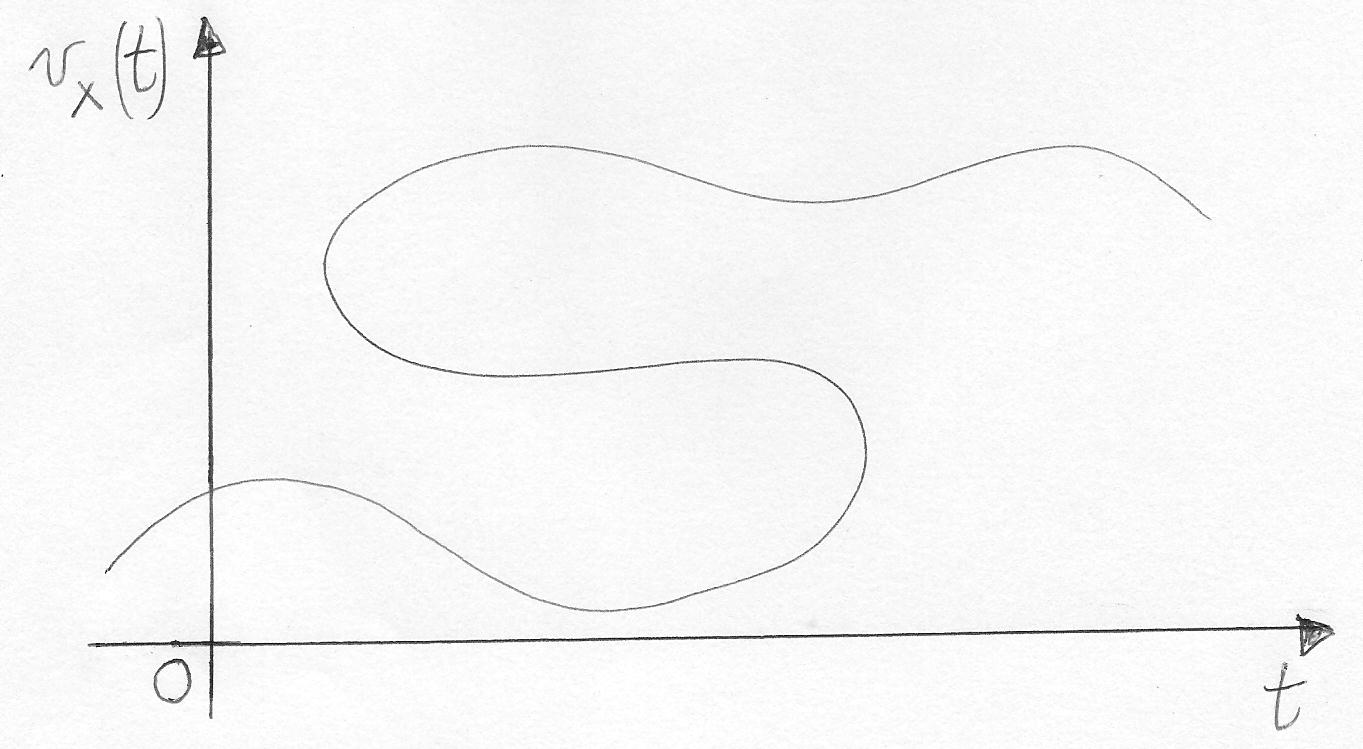 v_x(t)
0
t